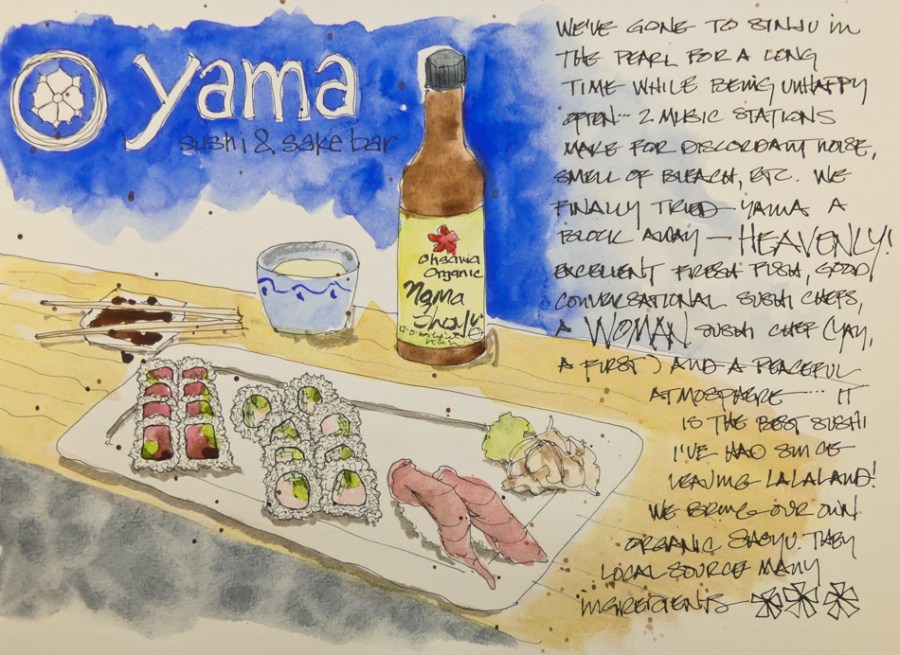 yama
sushi & sake bar
Ohsawa
Organic
Nama
Shoyu
WE'VE GONE TO SINJU in
THE PEARL FOR A LONG
TIME WHILE BEING UNHAPPY
OFTEN... 2 MUSIC STATIONS
MAKE FOR DISCORDANT NOISE,
SMELL OF BLEACH, ETC. WE
FINALLY TRIED YAMA A
BLOCK AWAY — HEAVENLY!
EXCELLENT FRESH FISH, GOOD
CONVERSATIONAL SUSHI CHEFS,
A WOMAN SUSHI CHEF (YAY,
A FIRST) AND A PEACEFUL
ATMOSPHERE .... IT
IS THE BEST SUSHI
I'VE HAD SINCE
LEAVING LALALAND!
WE BRING OUR OWN
ORGANIC SHOYU. THEY
LOCAL SOURCE MANY
INGREDIENTS